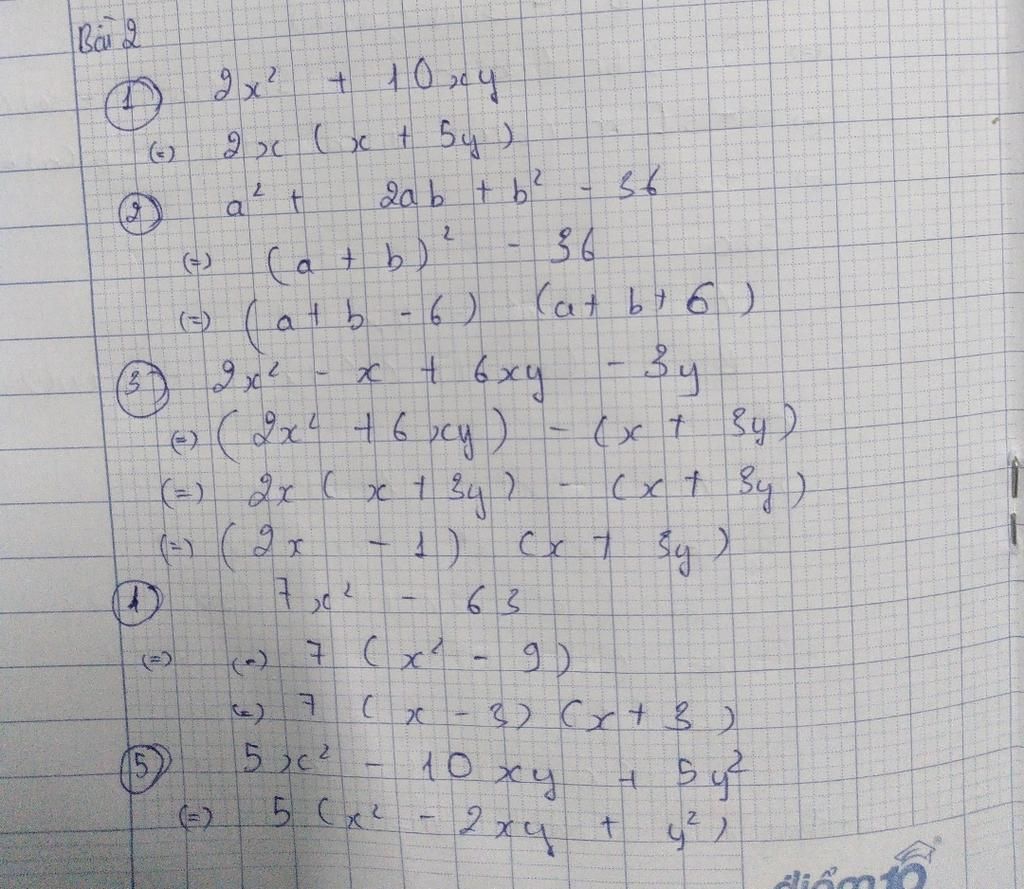 Bài 2
① 2x² + 10xy
(=) 2x (x + 5y)
② a² + 2ab + b² - 36
(=) (a + b)² - 36
(=) (a + b - 6) (a + b + 6)
③ 2x² - x + 6xy - 3y
(=) (2x² + 6xy) - (x + 3y)
(=) 2x (x + 3y) - (x + 3y)
(=) (2x - 1) (x + 3y)
④ 7x² - 63
(=) (=) 7 (x² - 9)
(=) 7 (x - 3) (x + 3)
⑤ 5x² - 10xy + 5y²
(=) 5 (x² - 2xy + y²)
điểm 10